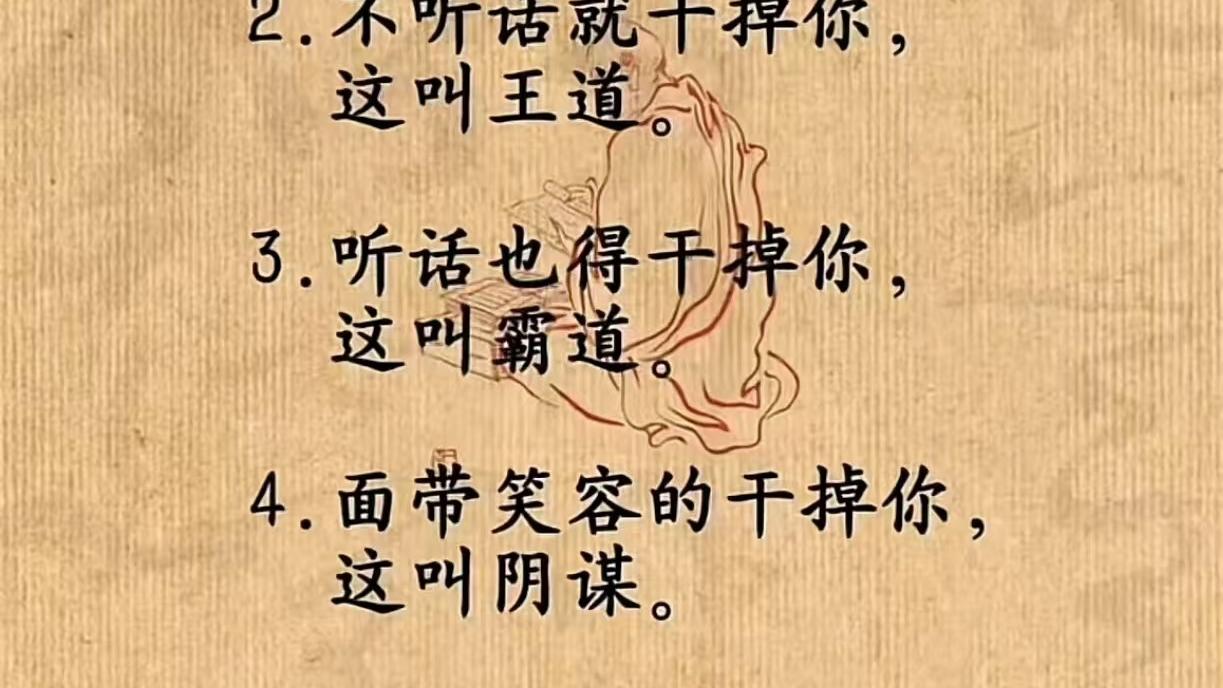 2.不听话就干掉你，
这叫王道。
3.听话也得干掉你，
这叫霸道。
4.面带笑容的干掉你，
这叫阴谋。